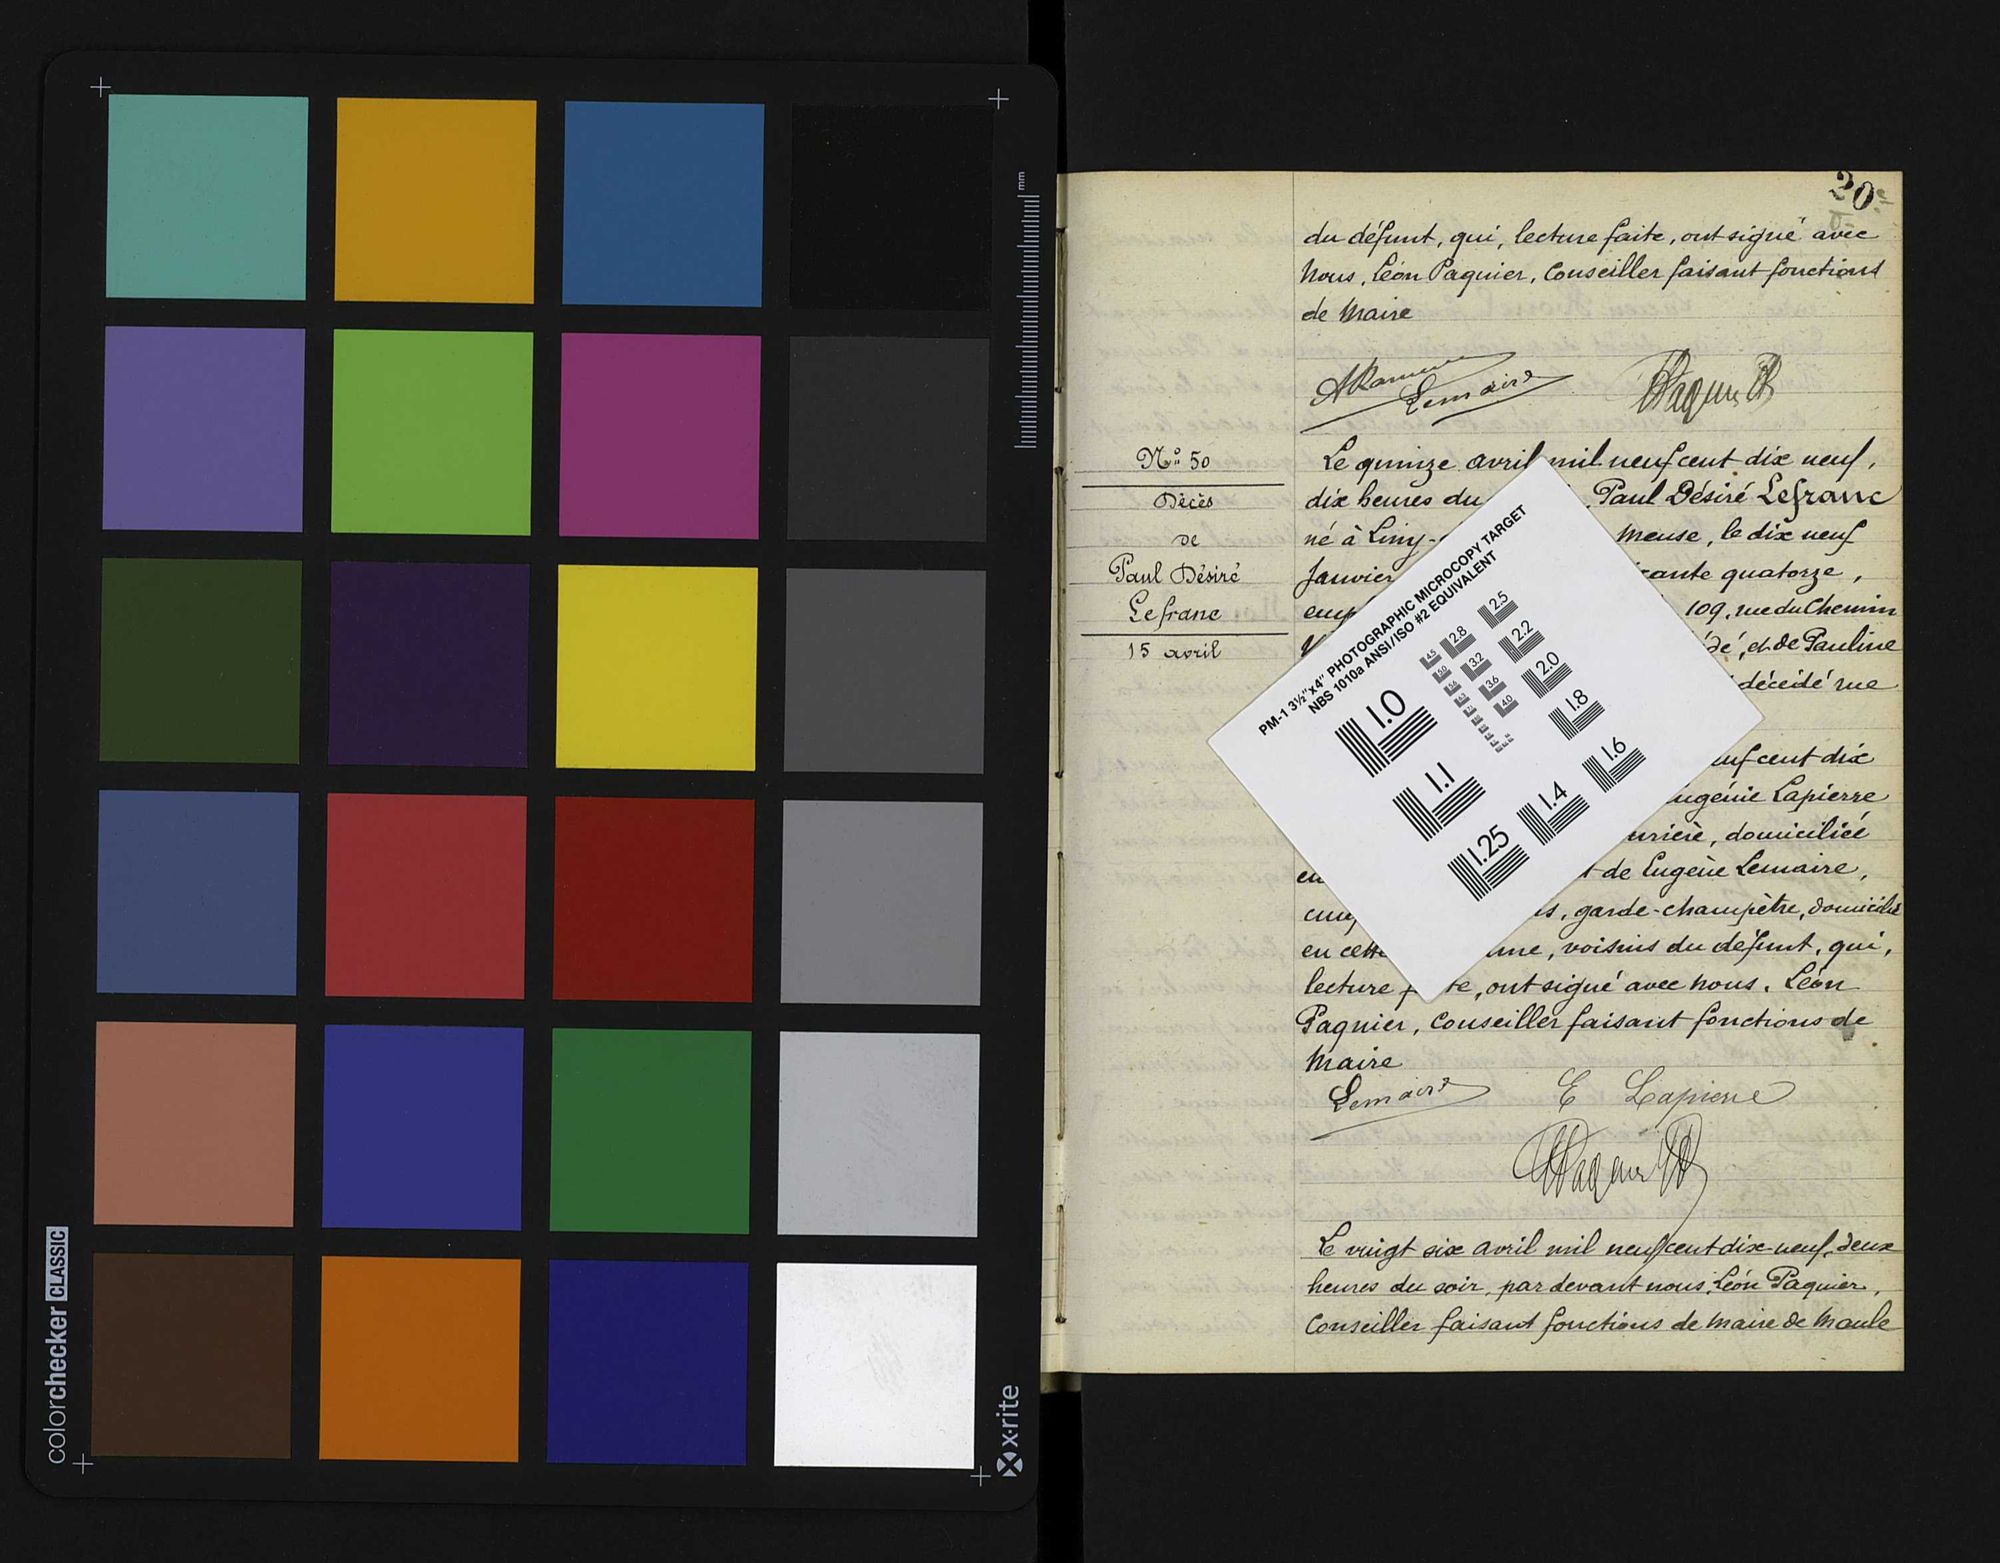 colorchecker CLASSIC
x·rite
mm
20
du défunt, qui, lecture faite, ont signé avec
nous, Léon Paquier, Conseiller faisant fonctions
de Maire
Lemaire
N° 50
Décès
de
Paul Désiré
Lefranc
15 avril
Le quinze avril mil neuf cent dix neuf,
dix heures du Paul Désiré Lefranc
né à Liny- Meuse, le dix neuf
Janvier quatorze,
109, rue du Chemin
et de Pauline
décédé rue
cent dix
Lapierre
domiciliée
de Eugène Lemaire,
garde-champêtre, domicilié
en cette voisins du défunt, qui,
lecture ont signé avec nous, Léon
Paquier, Conseiller faisant fonctions de
Maire
Lemaire E Lapierre
Le vingt six avril mil neuf cent dix-neuf, deux
heures du soir, par devant nous, Léon Paquier,
Conseiller faisant fonctions de Maire de Maule
PM-1 3½"x4" PHOTOGRAPHIC MICROCOPY TARGET
NBS 1010a ANSI/ISO #2 EQUIVALENT
1.0
1.1
1.25
1.4
1.6
1.8
2.0
2.2
2.5
2.8
3.2
3.6
4.0
4.5